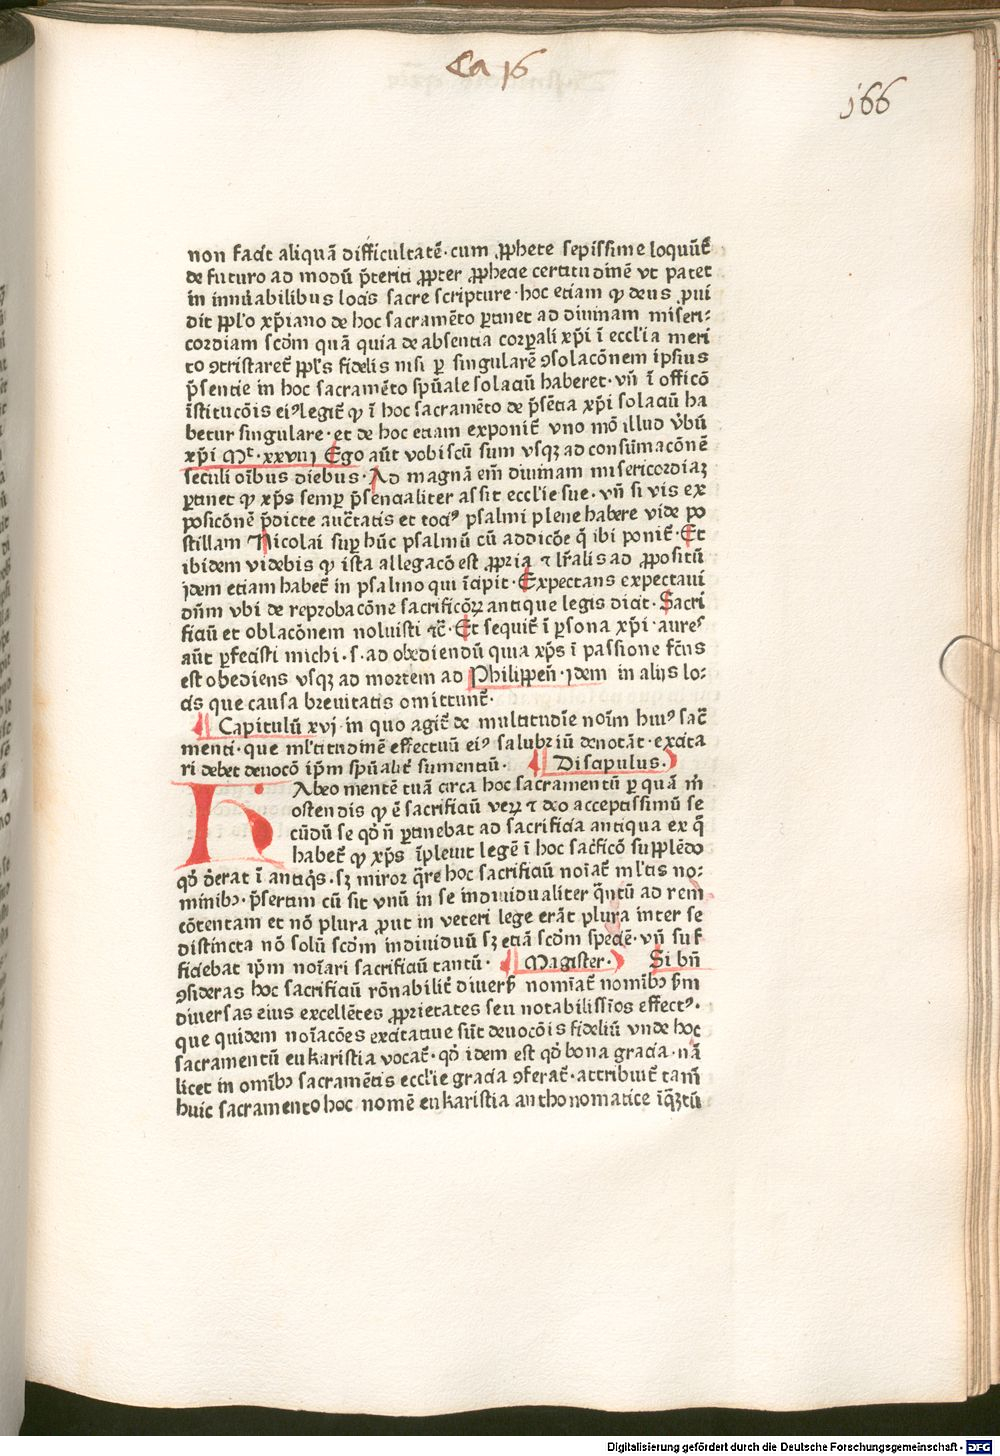 Ca 16
166
non facit aliquā difficultatē·cum ꝓphete sepissime loquūt᷑
de futuro ad modū p̄teriti ꝓpter ꝓphecie certitudinē vt patet
in innūabilibus locis sacre scripture·hoc etiam ꝙ deus ꝓui
dit ppl'o xp̄iano de hoc sacramēto ꝑtinet ad diuinam miseri-
cordiam scd̄m quā quia de absentia corꝑali xp̄i ī eccl'ia meri
to ꝯtristaret᷑ ppl's fidelis nisi ꝑ singularē ꝯsolacōnem ipsius
p̄sentie in hoc sacramēto sp̄uale solaciū haberet·vn̄ ī officō
īstitucōis eiꝰ legit᷑ ꝙ ī hoc sacramēto de p̄sētia xp̄i solaciū ha
betur singulare·et de hoc etiam exponit᷑ vno mō illud v̓bū
xp̄i Mt·xxviij Ego aūt vobiscū sum vsqꝫ ad consūmacōnē
seculi oībus diebus·Ad magnā em̄ diuinam misericordiaꝫ
ꝑtinet ꝙ xp̄s semꝑ p̄sencialiter assit eccl'ie sue·vn̄ si vis ex
posicōnē p̄dicte auct̄atis et tociꝰ psalmi plene habere vide po
stillam Nicolai suꝑ hūc psalmū cū addicōe q̄ ibi ponit᷑·Et
ibidem videbis ꝙ ista allegacō est ꝓpria ⁊ lr̄alis ad ꝓpositū
jdem etiam habet᷑ in psalmo qui īcipit·Expectans expectaui
dn̄m vbi de reprobacōne sacrificōꝝ antique legis dicit·Sacri
ficiū et oblacōnem noluisti ⁊c̄·Et sequit᷑ ī ꝑsona xp̄i·aures
aūt ꝑfecisti michi·s·ad obediendū quia xp̄s ī passione fc̄us
est obediens vsqꝫ ad mortem ad Philippen̄·jdem in alijs lo-
cis que causa breuitatis omittunt᷑·
Capitulū xvj·in quo agit᷑ de multitudīe noīm huiꝰ sac̄
menti·que ml'titudinē effectuū eiꝰ salubriū denotāt·excita
ri debet deuocō ip̄m sp̄ualit᷑ sumentiū· Discipulus·
HAbeo mentē tuā circa hoc sacramentū ꝑ quā m̄
ostendis ꝙ ē sacrificiū veꝝ ⁊ deo acceptissimū se
cūdū se qd̓ n̄ ꝑtinebat ad sacrificia antiqua ex q̄
habet᷑ ꝙ xp̄s īpleuit legē ī hoc sac̓ficō supplēdo
qd̓ d̓erat ī antiq̄s·sꝫ miror q̄re hoc sacrificiū noīat᷑ ml'tis no-
minibꝫ·p̄sertim cū sit vnū in se indiuidualiter q̄ntū ad rem
cōtentam et nō plura ꝓut in veteri lege erāt plura inter se
distincta nō solū scd̄m indiuiduū sꝫ etiā scd̄m specie·vn̄ suf
ficiebat ip̄m noīari sacrificiū tantū· Magister· Si bn̄
ꝯsideras hoc sacrificiū rōnabilit᷑ diuers̄ nomīat᷑ nomībꝫ s̄m
diuersas eius excellētes ꝓprietates seu notabilissīos effectꝰ·
que quidem noīacōes excitatiue sūt deuocōis fideliū vnde hoc
sacramentū eukaristia vocat᷑·qd̓ idem est qd̓ bona gracia·nā
licet in omībꝫ sacramētis eccl'ie gracia ꝯferat᷑·attribuit᷑ tam̄
huic sacramento hoc nomē eukaristia anthonomatice īq̄ꝫtū
Digitalisierung gefördert durch die Deutsche Forschungsgemeinschaft - DFG